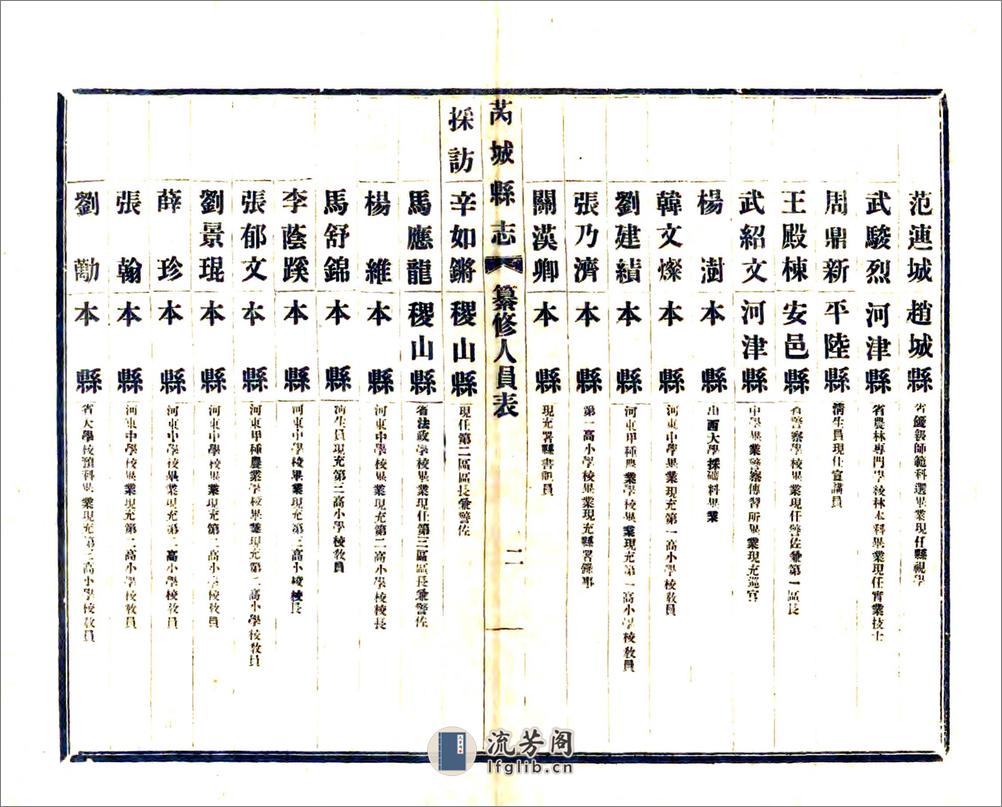 范漣城 趙城縣 省優級師範科選畢業現任縣視學
武駿烈 河津縣 省農林專門學校林本科畢業現任實業技士
周鼎新 平陸縣 清生員現任宣講員
王殿棟 安邑縣 省警察學校畢業現任警佐兼第一區長
武紹文 河津縣 中學畢業警察傳習所畢業現充巡官
楊樹 本縣 山西大學採礦科畢業
韓文燦 本縣 河東中學畢業現充第一高小學校教員
劉建績 本縣 河東甲種農業學校畢業現充第一高小學校教員
張乃濟 本縣 第一高小學校畢業現充縣署錄事
關漢卿 本縣 現充署縣書記員
芮城縣志 纂修人員表 二
採訪 辛如鏘 稷山縣 現任第二區區長兼警佐
馬應龍 稷山縣 省法政學校畢業現任第三區區長兼警佐
楊維 本縣 河東中學校畢業現充第二高小學校校長
馬舒錦 本縣 清生員現充第三高小學校教員
李蔭蹊 本縣 河東中學校畢業現充第三高小校校長
張郁文 本縣 河東甲種農業學校畢業現充第二高小學校教員
劉景琨 本縣 河東中學校畢業現充第二高小學校教員
薛珍 本縣 河東中學校畢業現充第二高小學校教員
張翰 本縣 河東中學校畢業現充第二高小學校教員
劉勷 本縣 省大學校預科畢業現充第三高小學校教員
流芳阁
lfglib.cn